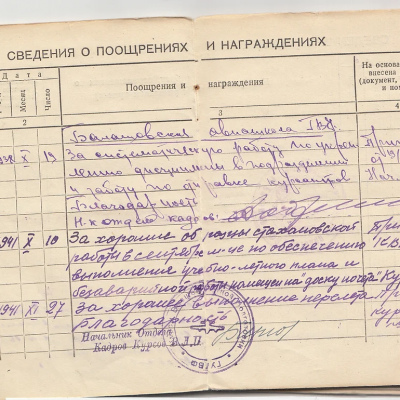 СВЕДЕНИЯ О ПООЩРЕНИЯХ И НАГРАЖДЕНИЯХ
Дата
Месяц
Число
Поощрения и награждения
На основа
внесена
(документ,
и но
2
3
4
Балашовская авиашкола ГВФ.
X 19 За систематическую работу по укреп
лению дисциплины в подразделении
и работу по
курсантов
Благодарность
Н-к отдела кадров:
1941 X 10 За хорошие образцы стахановской
работы в сентябре м-це по обеспечению
выполнения учебно-летного плана и
безаварийной работы помещен на "доску почета"
1941 XI 27 За хорошее выполнение перелета
Благодарность
Начальник Отдела
Кадров Курсов